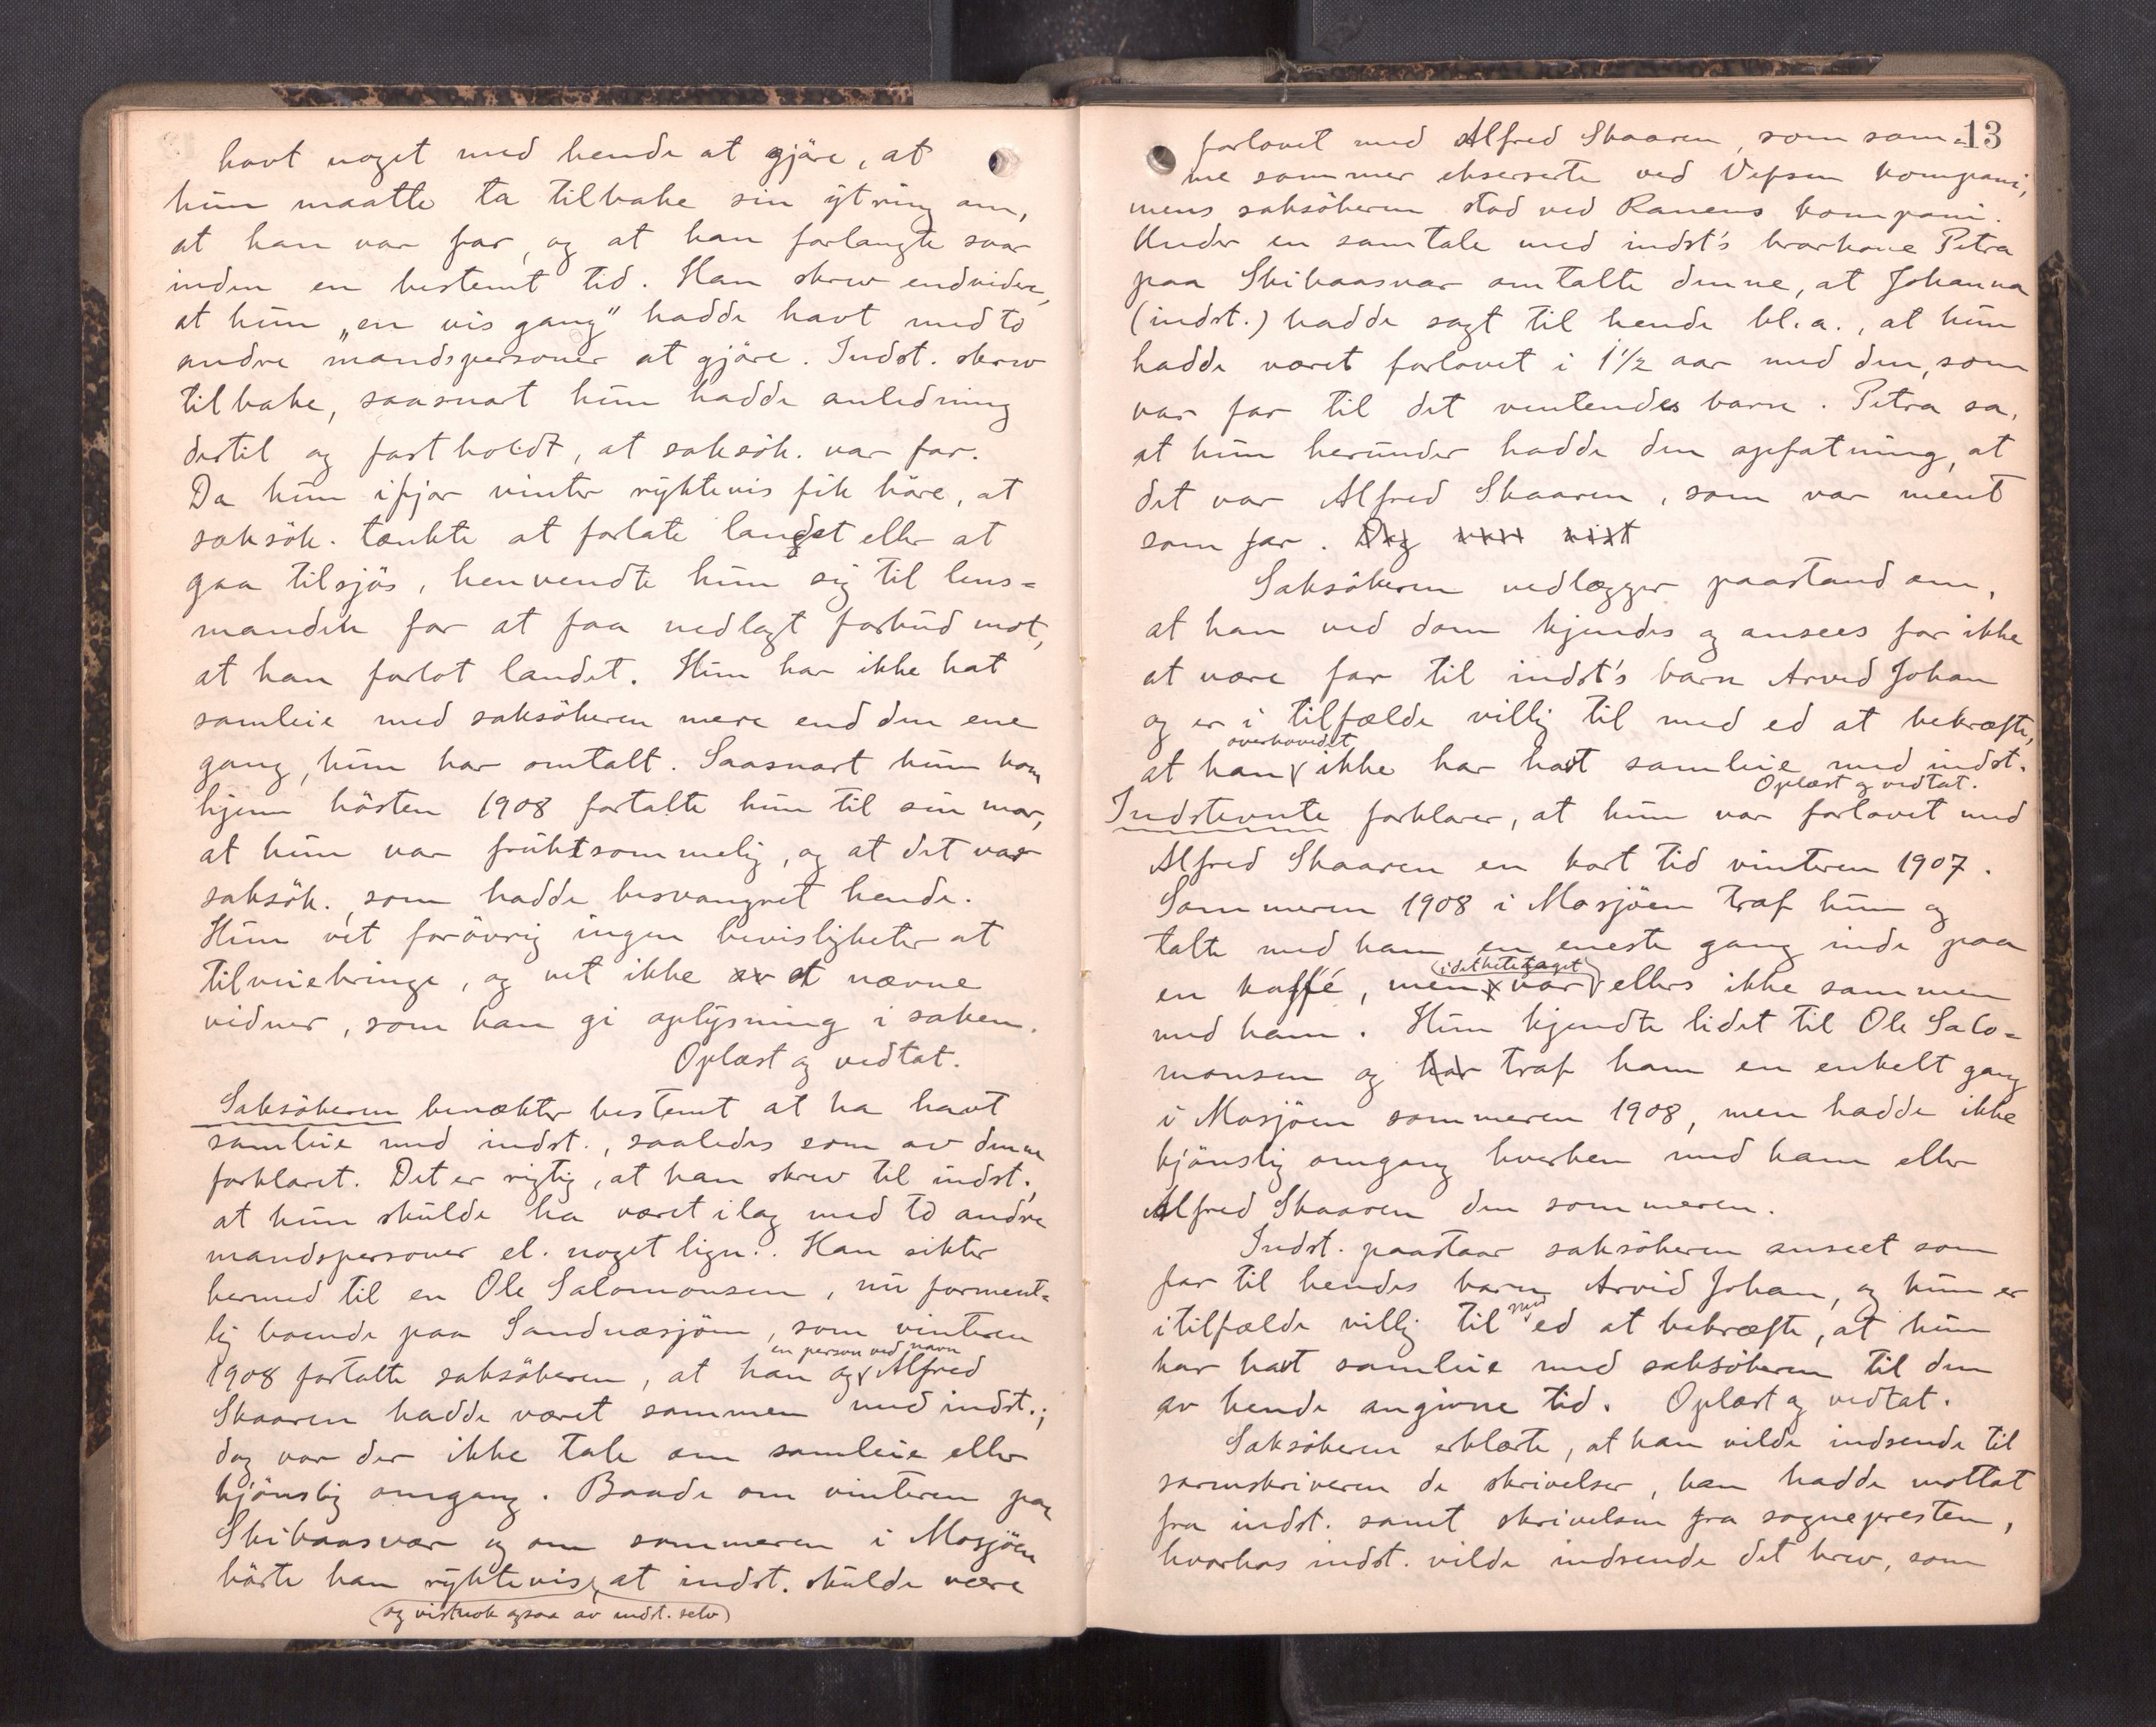 havt noget med hende at gjöre, at
hun maatte ta tilbake sin ytring om,
at han var far, og at han forlangte svar
inden en bestemt tid. Han skrev endvidere,
at hun „en vis gang" hadde havt med to
andre mandspersoner at gjöre. Indst. skrev
tilbake, saasnart hun hadde anledning
dertil og fastholdt, at saksök. var far.
Da hun ifjor vinter ryktevis fik höre, at
saksök. tænkte at forlate landet eller at
gaa tilsjös, henvendte hun sig til lens=
manden for at faa nedlagt forbud mot,
at han forlot landet. Hun har ikke hat
samleie med saksökeren mere end den ene
gang, hun har omtalt. Saasnart hun kom
hjem hösten 1908 fortalte hun til sin mor,
at hun var fruktsommelig, og at det var
saksök., som hadde besvangret hende.
Hun vet forövrig ingen bevisligheter at
tilveiebringe, og vet ikke av at nævne
vidner, som kan gi oplysning i saken.
Oplæst og vedtat.
Saksökeren benækter bestemt at ha havt
samleie med indst., saaledes som av denne
forklaret. Det er rigtig, at han skrev til indst.,
at hun skulde ha været ilag med to andre
mandspersoner el. noget lign.. Han sikter
hermed til en Ole Salomonsen, nu forment=
lig boende paa Sandnæsjöen, som vinteren
en person ved navn
1908 fortalte saksökeren, at han og Alfred
Skaaren hadde været sammen med indst.;
dog var der ikke tale om samleie eller
kjönslig omgang. Baade om vinteren paa
Skibaasvær og om sommeren i Mosjöen
hörte han ryktevis, at indst. skulde være
(og vistnok ogsaa av indst. selv)
13
forlovet med Alfred Skaaren, som sam=
me sommer ekserserte ved Vefsen kompani,
mens saksökeren stod ved Ranens kompani.
Under en samtale med indst's brorkone Petra
paa Skibaasvær omtalte denne, at Johanna
(indst.) hadde sagt til hende bl.a., at hun
hadde været forlovet i 1½ aar med den, som
var far til det ventendes barn. Petra sa,
at hun herunder hadde den opfatning, at
det var Alfred Skaaren, som var ment
som far.
Saksökeren nedlægger paastand om,
at han ved dom kjendes og ansees for ikke
at være far til indst's barn Arvid Johan
og er i tilfælde villig til med ed at bekræfte,
overhovedet
at han ikke har hat samleie med indst.
Oplæst og vedtat.
Indstevnte forklarer, at hun var forlovet med
Alfred Skaaren en kort tid vinteren 1907.
Sommeren 1908 i Mosjöen traf hun og
talte med ham en eneste gang inde paa
(idethetetaget)
en kaffé, men var ellers ikke sammen
med ham. Hun kjendte lidet til Ole Salo=
monsen og har traf ham en enkelt gang
i Mosjöen sommeren 1908, men hadde ikke
kjönslig omgang hverken med ham eller
Alfred Skaaren den sommeren.
Indst. paastaar saksökeren anseet som
far til hendes barn Arvid Johan, og hun er
med
itilfælde villig til ed at bekræfte, at hun
har hat samleie med saksökeren til den
av hende angivne tid. Oplæst og vedtat.
Saksökeren erklærte, at han vilde indsende til
sorenskriveren de skrivelser, han hadde mottat
fra indst. samt skrivelsen fra sognepresten,
hvorhos indst. vilde indsende det brev, som